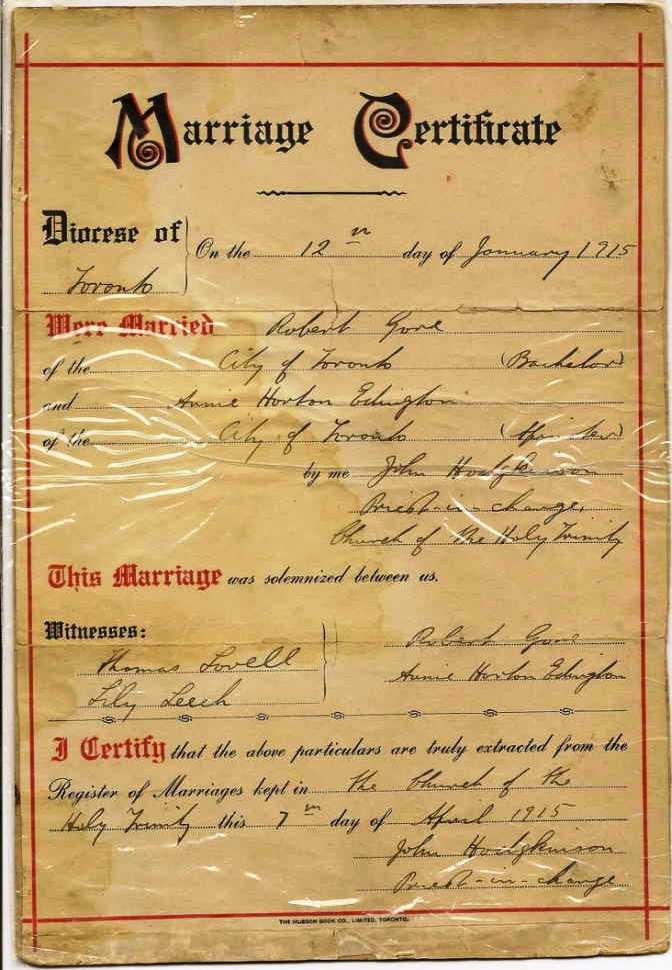 Marriage Certificate
Diocese of
Toronto
On the 12th day of January 1915
Were Married Robert Gore
of the City of Toronto (Bachelor)
and Annie Horton Edington
of the City of Toronto (Spinster)
by me John Hodgkinson
Priest-in-charge,
Church of the Holy Trinity
This Marriage was solemnized between us.
Witnesses:
Thomas Lovell
Lily Leech
Robert Gore
Annie Horton Edington
I Certify that the above particulars are truly extracted from the
Register of Marriages kept in the Church of the
Holy Trinity this 7th day of April 1915
John Hodgkinson
Priest-in-charge
THE HUNSON BOOK CO., LIMITED, TORONTO.